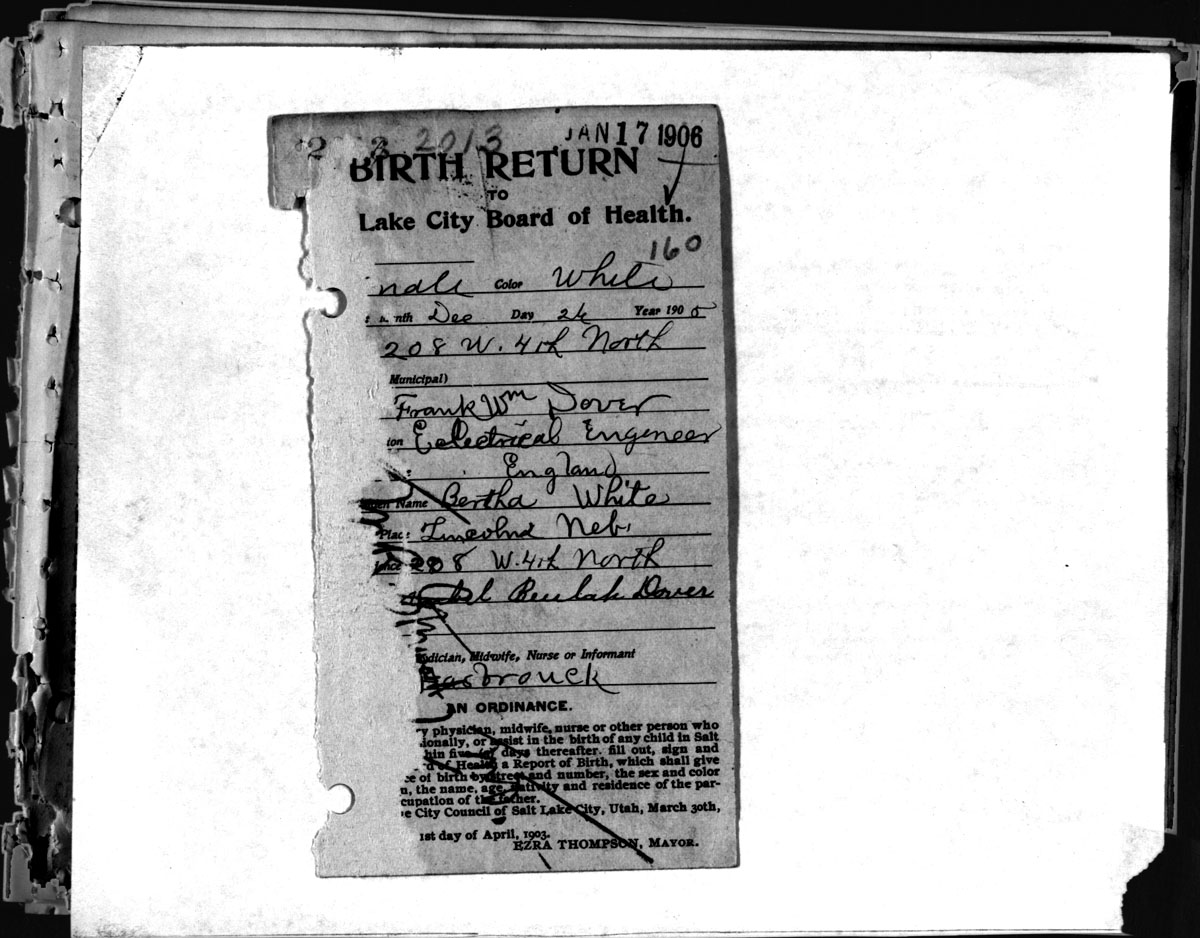 2013 JAN 17 1906
BIRTH RETURN
TO
Lake City Board of Health.
160
male Color White
nth Dec Day 26 Year 1905
208 W. 4th North
Municipal)
Frank Wm Dover
ion Eclectrical Engineer
England
en Name Bertha White
Place Lincolnd Neb.
ence 208 W. 4th North
Beulah Dover
ysician, Midwife, Nurse or Informant
asbrouck
AN ORDINANCE.
y physician, midwife, nurse or other person who
ionally, or assist in the birth of any child in Salt
hin five days thereafter. fill out, sign and
d of Health a Report of Birth, which shall give
ce of birth by street and number, the sex and color
n, the name, age, nativity and residence of the par-
cupation of the father.
e City Council of Salt Lake City, Utah, March 30th,
1st day of April, 1903.
EZRA THOMPSON, MAYOR.